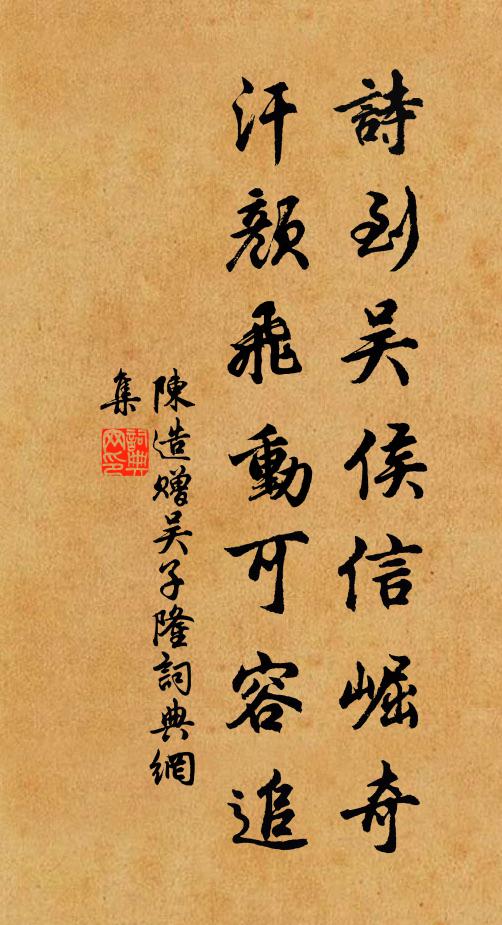 詩到吴侯信崛奇
汗顔飛動可容追
陳造贈吴子隆詞典網
集
詞典網印